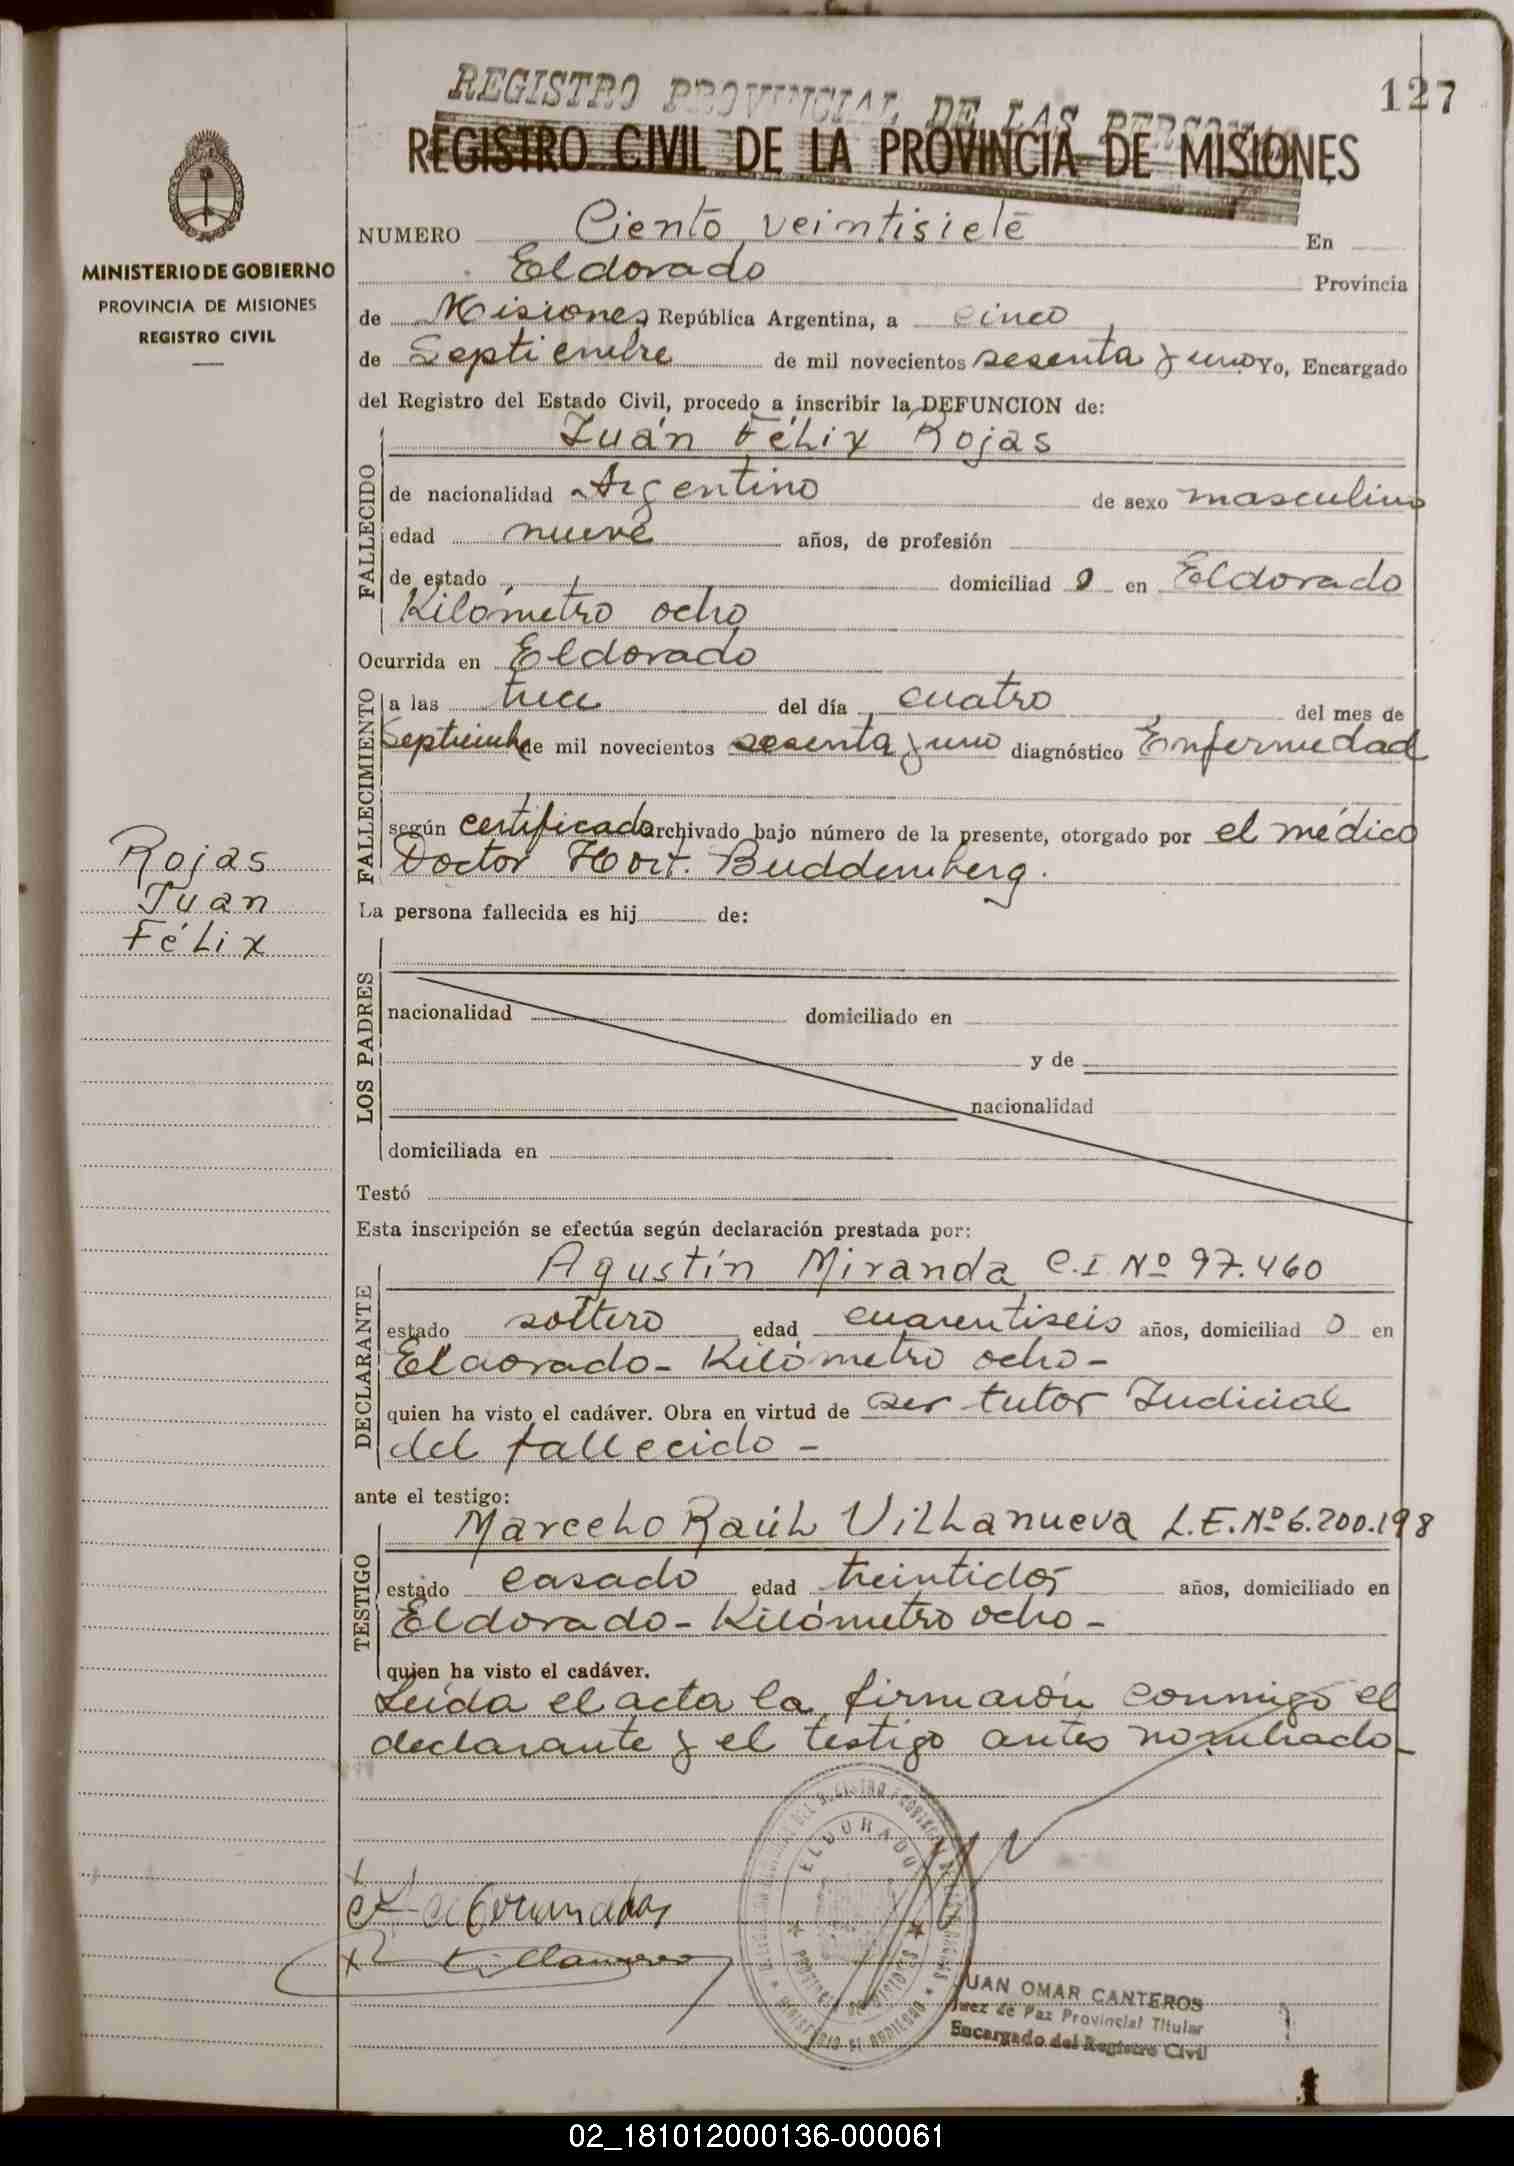 127
REGISTRO PROVINCIAL DE LAS
REGISTRO CIVIL DE LA PROVINCIA DE MISIONES
MINISTERIO DE GOBIERNO
PROVINCIA DE MISIONES
REGISTRO CIVIL
NUMERO Ciento veintisiete En
Eldorado Provincia
de Misiones República Argentina, a cinco
de Septiembre de mil novecientos sesenta y uno Yo, Encargado
del Registro del Estado Civil, procedo a inscribir la DEFUNCION de:
Juán Félix Rojas
FALLECIDO
de nacionalidad Argentino de sexo masculino
edad nueve años, de profesión
de estado domiciliad o en Eldorado
Kilómetro ocho
Ocurrida en Eldorado
FALLECIMIENTO
a las trece del día cuatro del mes de
Septiembre de mil novecientos sesenta y uno diagnóstico Enfermedad
según certificado archivado bajo número de la presente, otorgado por el médico
Doctor Hort. Buddemberg.
Rojas
Juan
Félix
La persona fallecida es hij de:
LOS PADRES
nacionalidad domiciliado en
y de
nacionalidad
domiciliada en
Testó
Esta inscripción se efectúa según declaración prestada por:
Agustín Miranda C.I Nº 97.460
DECLARANTE
estado soltero edad cuarentiseis años, domiciliad o en
Eldorado - Kilómetro ocho -
quien ha visto el cadáver. Obra en virtud de ser tutor Judicial
del fallecido -
ante el testigo:
Marcelo Raúl Villanueva L.E. Nº 6.200.198
TESTIGO
estado casado edad treintidos años, domiciliado en
Eldorado - Kilómetro ocho -
quien ha visto el cadáver.
Leída el acta la firmarón conmigo el
declarante y el testigo antes nombrado -
ELDORADO
JUAN OMAR CANTEROS
Juez de Paz Provincial Titular
Encargado del Registro Civil
02_181012000136-000061